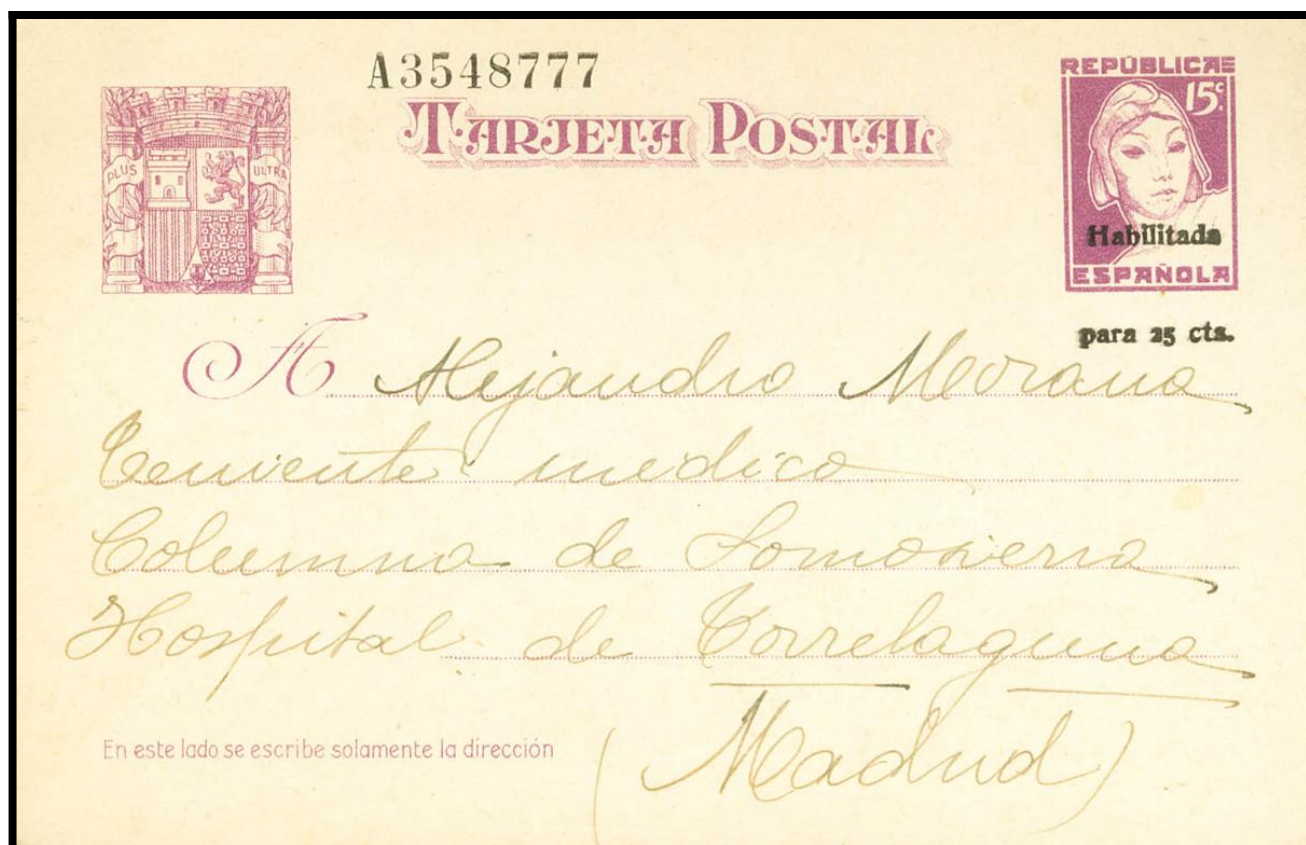 A3548777
TARJETA POSTAL
REPÚBLICA
15c.
PLUS ULTRA
Habilitada
ESPAÑOLA
para 25 cts.
A Alejandro
Teniente medico
Columna de Somosierra
Hospital de Torrelaguna
(Madrid)
En este lado se escribe solamente la dirección